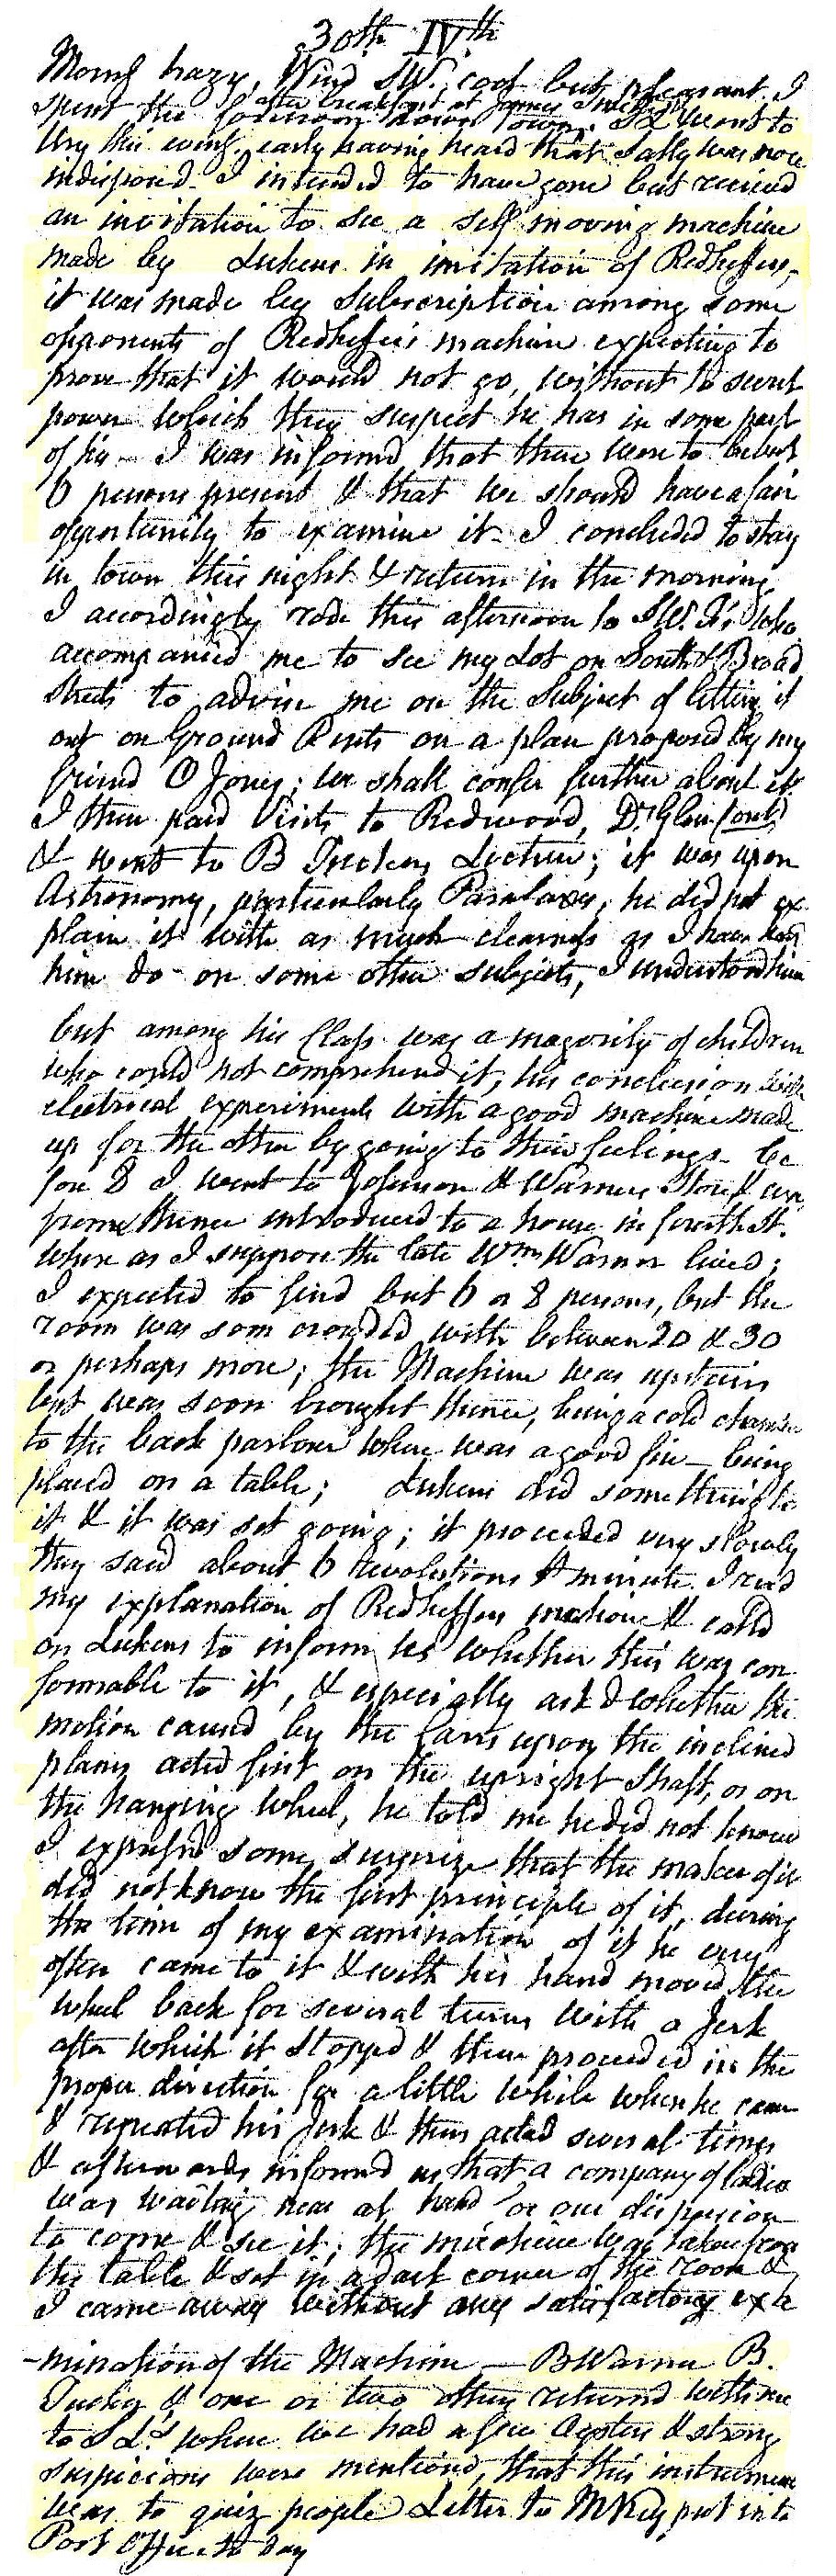 30th IVth
Morng hazy, Wind SW., cool but pleasant. I
after breakfast at James Smith's
spent the forenoon down Town. went to
Ury this eveng. early having heard that Sally was more
indisposed. I intended to have gone but received
an invitation to see a self moving machine
made by Lukens in imitation of Redheffers,
it was made by Subscription among some
opponents of Redheffer's machine expecting to
prove that it would not go, without a secret
power which they suspect he has in some part
of his - I was informd that there were to be but
6 persons present & that we should have a fair
opportunity to examine it. I concluded to stay
in town this night & return in the morning
I accordingly rode this afternoon to who
accompanied me to see my Lot on South & Broad
Streets to advise me on the Subject of letting it
out on Ground Rents on a plan proposed by my
friend O Jones; we shall confer further about it.
I then paid Visits to Redwood, Dr. (out)
& went to B Tuckers Lecture; it was upon
Astronomy, particularly Paralaxes, he did not ex
plain it with as much clearness as I have heard
him do on some other subjects, I understood him
but among his Class was a majority of children
who could not comprehend it, his conclusion with
electrical experiments with a good machine made
up for the other by going to their feelings. be
fore 8 I went to Johnson & Warners Store & was
from thence introduced to a house in fourth St.
where as I suppose the late Wm. Warner lived;
I expected to find but 6 or 8 persons, but the
room was soon crowded with between 20 & 30
or perhaps more; the Machine was upstairs
but was soon brought thence, being a cold chamber
to the back parlour where was a good fire - being
placed on a table; Lukens did something to
it & it was set going; it proceeded very slowly
they said about 6 revolutions minute. I read
my explanation of Redheffers machine & calld
on Lukens to inform us whether this was con
formable to it, & especially askd whether the
motion caused by the cars upon the inclined
planes acted first on the upright Shaft, or on
the hanging Wheel, he told me he did not know
I expressed some surprize that the maker of it
did not know the first principle of it, during
the time of my examination of it he very
often came to it & with his hand moved the
wheel back for several turns with a Jerk
after which it stopped & then proceeded in the
proper direction for a little while when he came
& repeated his Jerk & thus acted several times
& afterwards informed us that a company of ladies
was waiting near at hand our dispersion
to come & see it; the machine was taken from
the table & set in a dark corner of the room &
I came away without any satisfactory exa
-mination of the Machine - B Warner B.
Tucker & one or two others returned with me
to where we had a few Oysters & strong
suspicions were mentioned, that this instrument
was to quiz people Letter to put into
Post Office to day